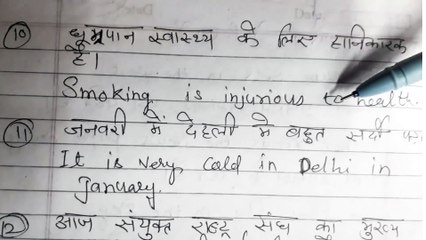 10) धूम्रपान स्वास्थ्य के लिए हानिकारक
है।
Smoking is injurious to health.
11) जनवरी में देहली मे बहुत सर्दी
It is very cold in Delhi in
January.
12) आज संयुक्त राष्ट्र संघ का मुख्य